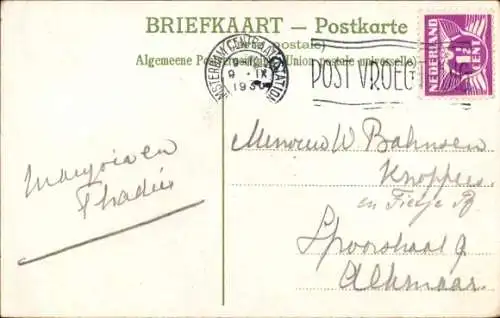 BRIEFKAART — Postkarte
(Carte postale)
Algemeene Postvereeniging (Union postale universelle)
AMSTERDAM CENTRAAL STATION
9 - IX
1930
POST VROEG
NEDERLAND
1½
CENT
Marjoia en
Thadéé
W Bahnsen
Knoppers.
en Fietje B
Spoorstraat 9
Alkmaar.